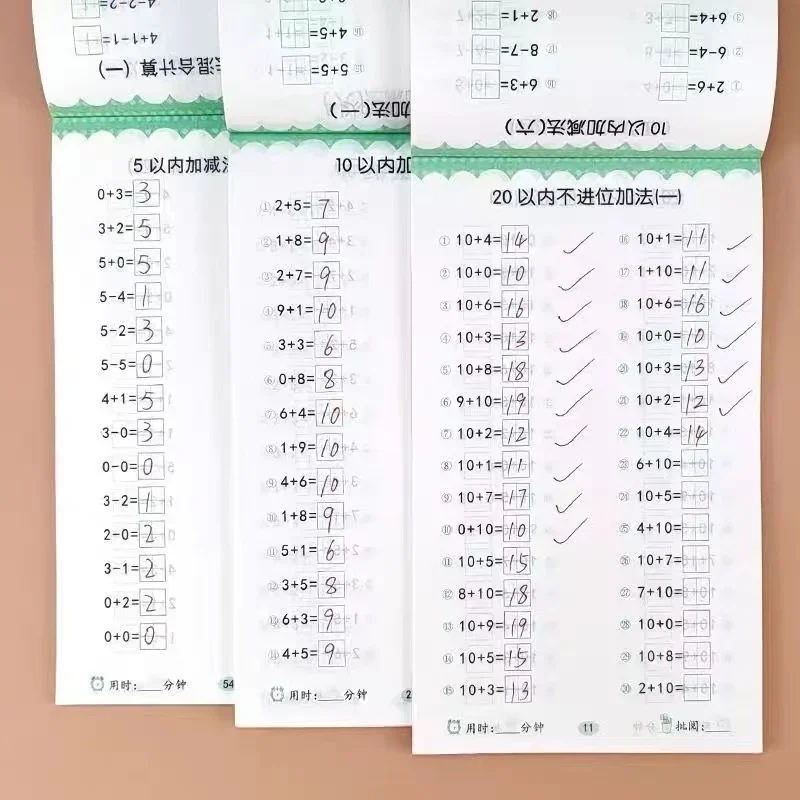 混合计算 (一)
加法(一)
10 以内加减法(六)
5 以内加减法
0+3=3
3+2=5
5+0=5
5-4=1
5-2=3
5-5=0
4+1=5
3-0=3
0-0=0
3-2=1
2-0=2
3-1=2
0+2=2
0+0=0
用时:____分钟
54
10 以内加
① 2+5=7
② 1+8=9
③ 2+7=9
④ 9+1=10
⑤ 3+3=6
⑥ 0+8=8
⑦ 6+4=10
⑧ 1+9=10
⑨ 4+6=10
⑩ 1+8=9
⑪ 5+1=6
⑫ 3+5=8
⑬ 6+3=9
⑭ 4+5=9
用时:____分钟
2
20 以内不进位加法(一)
① 10+4=14
② 10+0=10
③ 10+6=16
④ 10+3=13
⑤ 10+8=18
⑥ 9+10=19
⑦ 10+2=12
⑧ 10+1=11
⑨ 10+7=17
⑩ 0+10=10
⑪ 10+5=15
⑫ 8+10=18
⑬ 10+9=19
⑭ 10+5=15
⑮ 10+3=13
⑯ 10+1=11
⑰ 1+10=11
⑱ 10+6=16
⑲ 10+0=10
⑳ 10+3=13
㉑ 10+2=12
㉒ 10+4=14
㉓ 6+10=
㉔ 10+5=
㉕ 4+10=
㉖ 10+7=
㉗ 7+10=
㉘ 10+0=
㉙ 10+8=
㉚ 2+10=
用时:____分钟
11
批阅:____